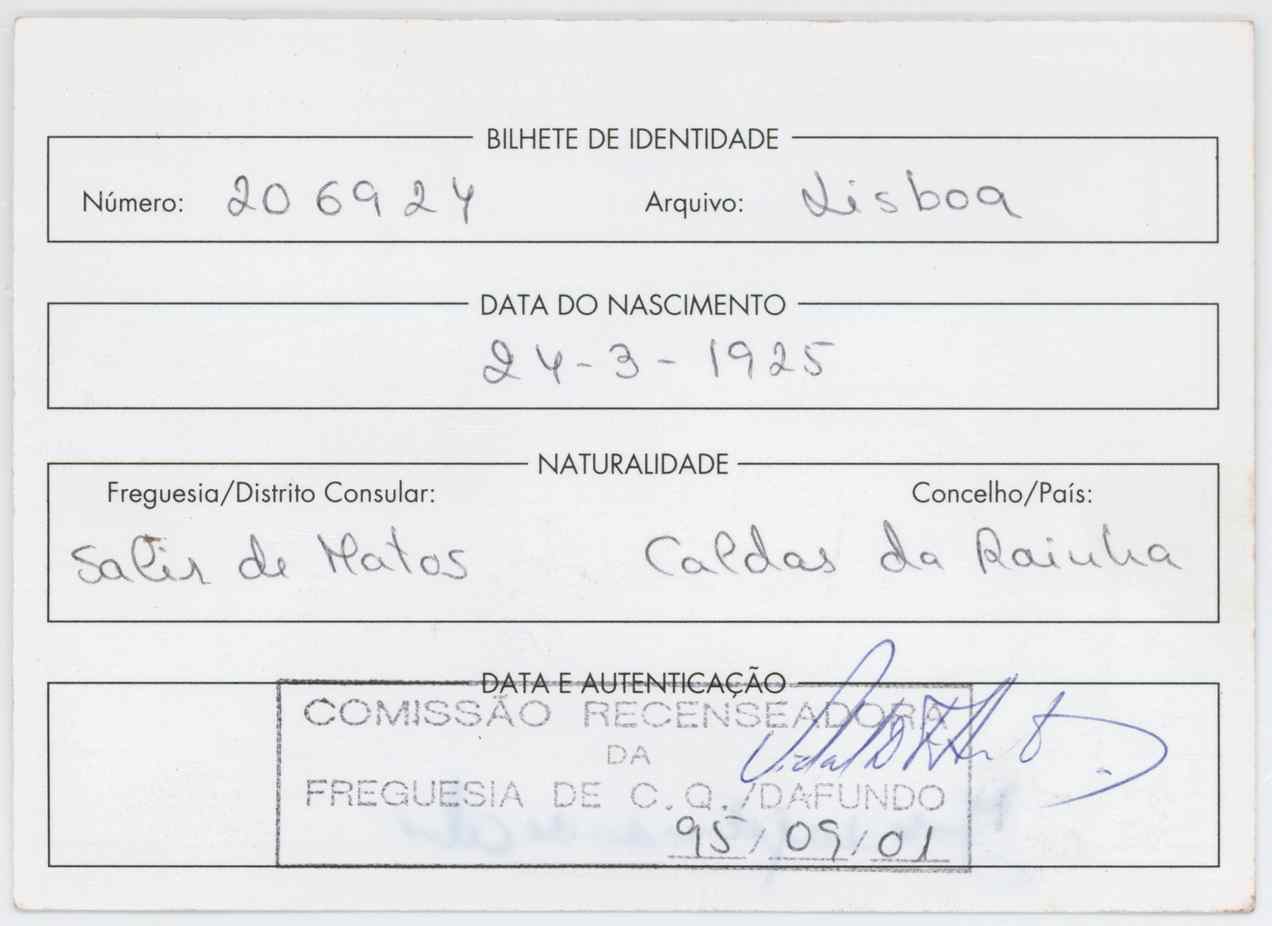 BILHETE DE IDENTIDADE
Número: 206924 Arquivo: Lisboa
DATA DO NASCIMENTO
24-3-1925
NATURALIDADE
Freguesia/Distrito Consular: Concelho/País:
Salir de Matos Caldas da Rainha
DATA E AUTENTICAÇÃO
COMISSÃO RECENSEADORA
DA
FREGUESIA DE C.Q./DAFUNDO
95/09/01